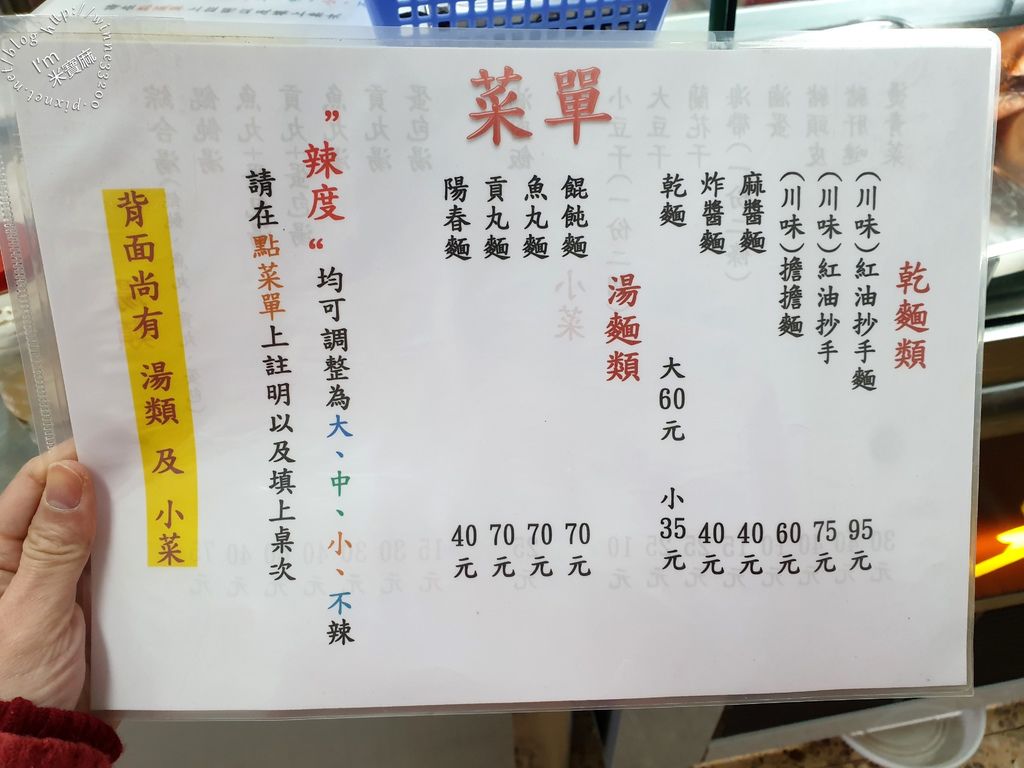 菜單
乾麵類
（川味）紅油抄手麵 95元
（川味）紅油抄手 75元
（川味）擔擔麵 60元
麻醬麵 40元
炸醬麵 40元
乾麵 大60元 小35元
湯麵類
餛飩麵 70元
魚丸麵 70元
貢丸麵 70元
陽春麵 40元
”辣度“均可調整為大、中、小、不辣
請在點菜單上註明以及填上桌次
背面尚有 湯類 及 小菜
I'm 米寶麻
blog http://winnie33200.pixnet.net/